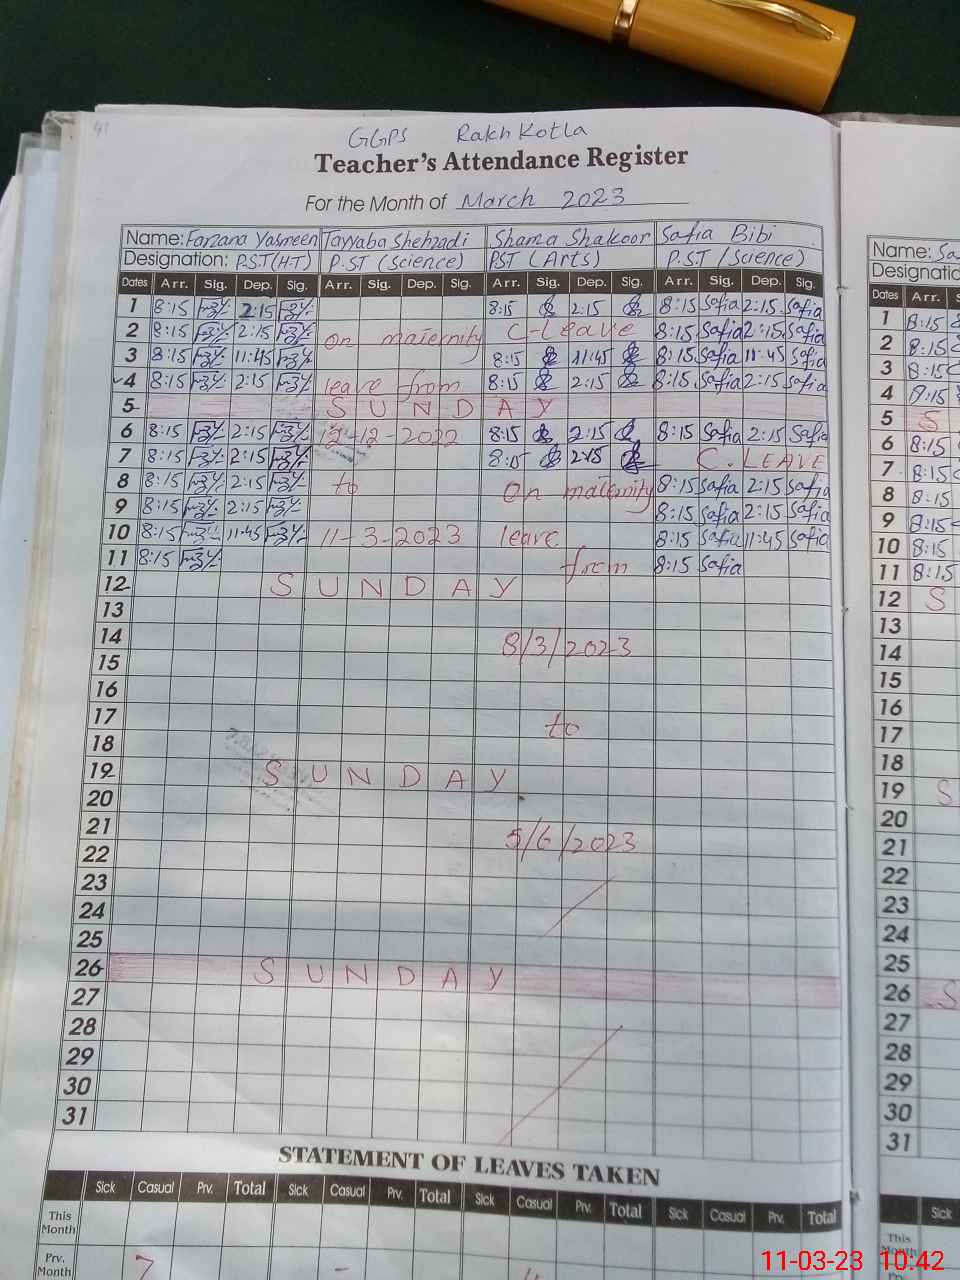 41
GGPS Rakh Kotla
Teacher's Attendance Register
For the Month of March 2023
Name: Farzana Yasmeen Tayyaba Shehzadi Shama Shakoor Safia Bibi Name: Sa
Designation: P.S.T (H.T) P.ST (Science) PST (Arts) P.ST (Science) Designatio
Dates Arr. Sig. Dep. Sig. Arr. Sig. Dep. Sig. Arr. Sig. Dep. Sig. Arr. Sig. Dep. Sig. Dates Arr.
1 8:15 2:15 8:15 2:15 8:15 Safia 2:15 Safia 1 8:15
2 8:15 2:15 on maternity C-Leave 8:15 Safia 2:15 Safia 2 8:15
3 8:15 11:45 8:15 11:45 8:15 Safia 11:45 Safia 3 8:15
4 8:15 2:15 leave from 8:15 2:15 8:15 Safia 2:15 Safia 4 8:15
5 SUNDAY 5 S
6 8:15 2:15 12-12-2022 8:15 2:15 8:15 Safia 2:15 Safia 6 8:15
7 8:15 2:15 8:15 2:15 C.LEAVE 7 8:15
8 8:15 2:15 to On maternity 8:15 Safia 2:15 Safia 8 8:15
9 8:15 2:15 8:15 Safia 2:15 Safia 9 8:15
10 8:15 11:45 11-3-2023 leave 8:15 Safia 11:45 Safia 10 8:15
11 8:15 from 8:15 Safia 11 8:15
12 SUNDAY 12 S
13 13
14 8/3/2023 14
15 15
16 16
17 to 17
18 18
19 SUNDAY 19 S
20 20
21 5/6/2023 21
22 22
23 23
24 24
25 25
26 SUNDAY 26 S
27 27
28 28
29 29
30 30
31 31
STATEMENT OF LEAVES TAKEN
Sick Casual Prv. Total Sick Casual Prv. Total Sick Casual Prv. Total Sick Casual Prv. Total Sick
This Month This Month
Prv. Month 7 - 4 Prv. Month
11-03-23 10.42